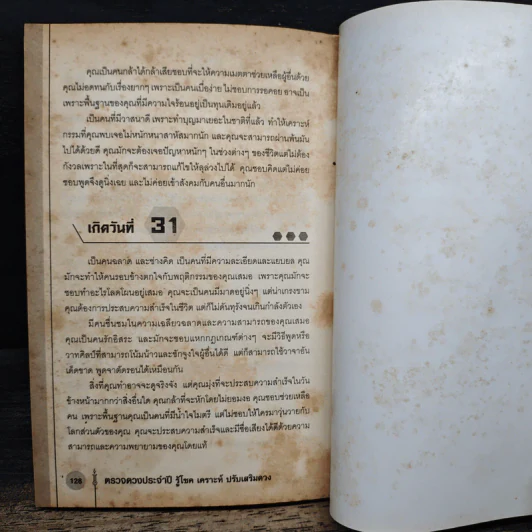 คุณเป็นคนกล้าได้กล้าเสียชอบที่จะให้ความเมตตาช่วยเหลือผู้อื่นด้วย
คุณไม่อดทนกับเรื่องยากๆ เพราะเป็นคนเบื่อง่าย ไม่ชอบการรอคอย อาจเป็น
เพราะพื้นฐานของคุณที่มีความใจร้อนอยู่เป็นทุนเดิมอยู่แล้ว
เป็นคนที่มีวาสนาดี เพราะทำบุญมาเยอะในชาติที่แล้ว ทำให้เคราะห์
กรรมที่คุณพบเจอไม่หนักหนาสาหัสมากนัก และคุณจะสามารถผ่านพ้นมัน
ไปได้ด้วยดี คุณมักจะต้องเจอปัญหาหนักๆ ในช่วงต่างๆ ของชีวิตแต่ไม่ต้อง
กังวลเพราะในที่สุดก็จะสามารถแก้ไขให้ลุล่วงไปได้ คุณชอบคิดแต่ไม่ค่อย
ชอบพูดจึงดูนิ่งเฉย และไม่ค่อยเข้าสังคมกับคนอื่นมากนัก
เกิดวันที่ 31
เป็นคนฉลาด และช่างคิด เป็นคนที่มีความละเอียดและแยบยล คุณ
มักจะทำให้คนรอบข้างตกใจกับพฤติกรรมของคุณเสมอ เพราะคุณมักจะ
ชอบทำอะไรโลดโผนอยู่เสมอ คุณจะเป็นคนมีมาดอยู่นิ่งๆ แต่น่าเกรงขาม
คุณต้องการประสบความสำเร็จในชีวิต แต่ก็ไม่ดันทุรังจนเกินกำลังตัวเอง
มีคนชื่นชมในความเฉลียวฉลาดและความสามารถของคุณเสมอ
คุณเป็นคนรักอิสระ และมักจะชอบแหกกฎเกณฑ์ต่างๆ จะมีวิธีพูดหรือ
วาทศิลป์ที่สามารถโน้มน้าวและชักจูงใจผู้อื่นได้ดี แต่ก็สามารถใช้วาจาอัน
เด็ดขาด พูดจาตัดรอนได้เหมือนกัน
สิ่งที่คุณทำอาจจะดูจริงจัง แต่คุณมุ่งที่จะประสบความสำเร็จในวัน
ข้างหน้ามากกว่าสิ่งอื่นใด คุณกล้าที่จะหักโดยไม่ยอมงอ คุณชอบช่วยเหลือ
คน เพราะพื้นฐานคุณเป็นคนที่มีน้ำใจไมตรี แต่ไม่ชอบให้ใครมาวุ่นวายกับ
โลกส่วนตัวของคุณ คุณจะประสบความสำเร็จและมีชื่อเสียงได้ด้วยความ
สามารถและความพยายามของคุณโดยแท้
128 ตรวจดวงประจำปี รู้โชค เคราะห์ ปรับเสริมดวง